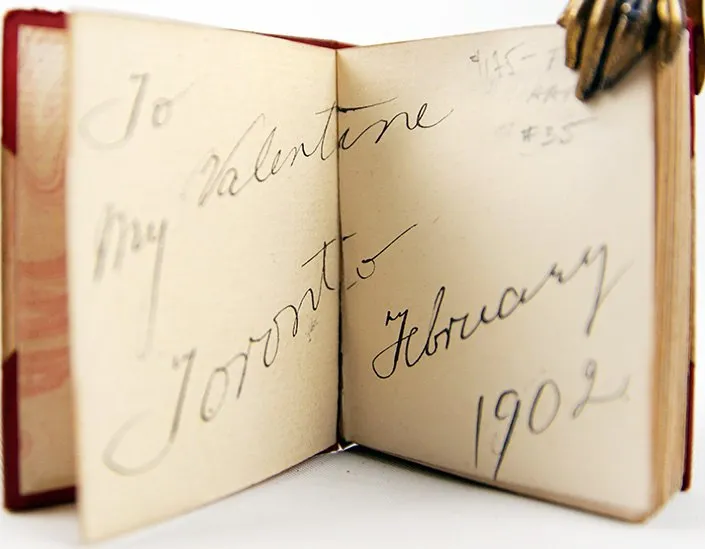 To
My Valentine
Toronto
February
1902
$175-
#35